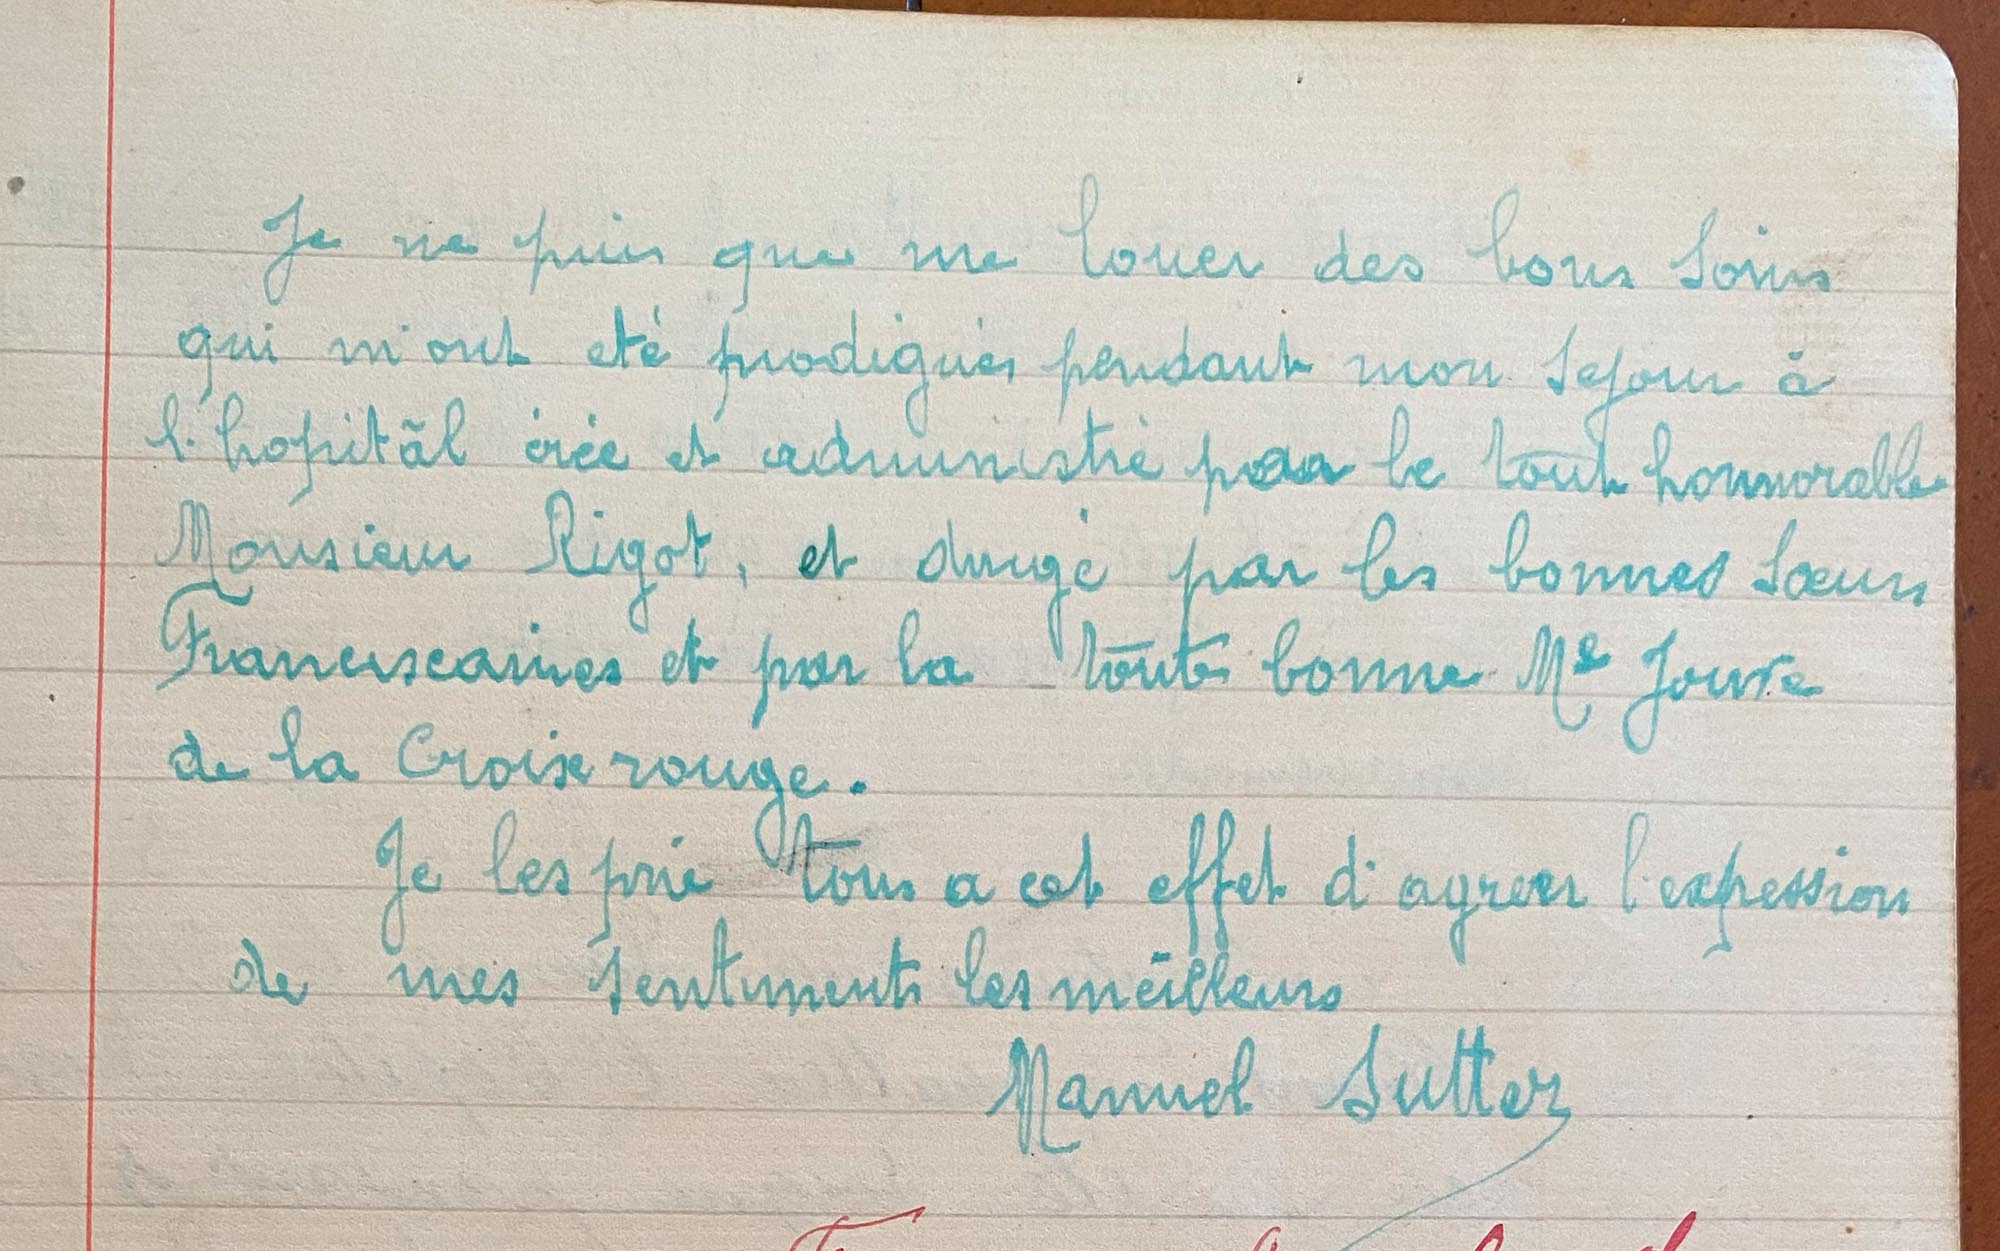 Je ne puis que me louer des bons soins
qui m'ont été prodigués pendant mon sejour à
l'hopitâl crée et administré par le tout honnorable
Monsieur Rigot, et dirigé par les bonnes sœurs
Franciscaines et par la toute bonne Me Jouve
de la Croix rouge.
Je les prie tous a cet effet d'agreer l'expession
de mes sentiments les meilleurs
Manuel Sutter